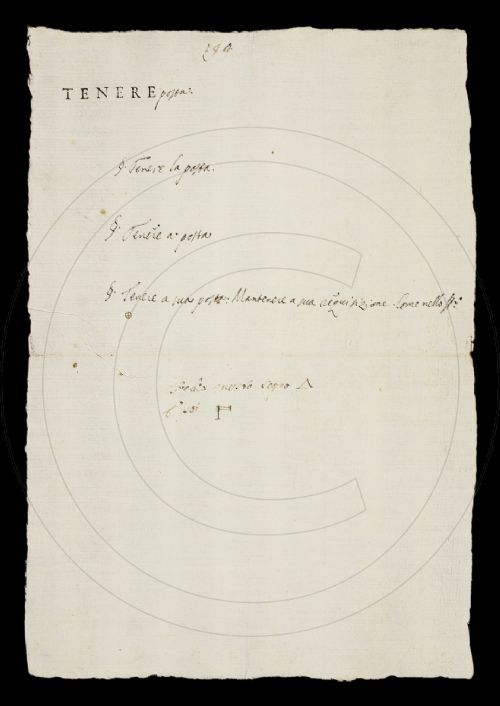 TENERE posta.
§. Tenere la posta.
§. Tenere a posta
§. Tenere a sua posta. Mantenere a sua requisizione. Come nello
questo segno Δ